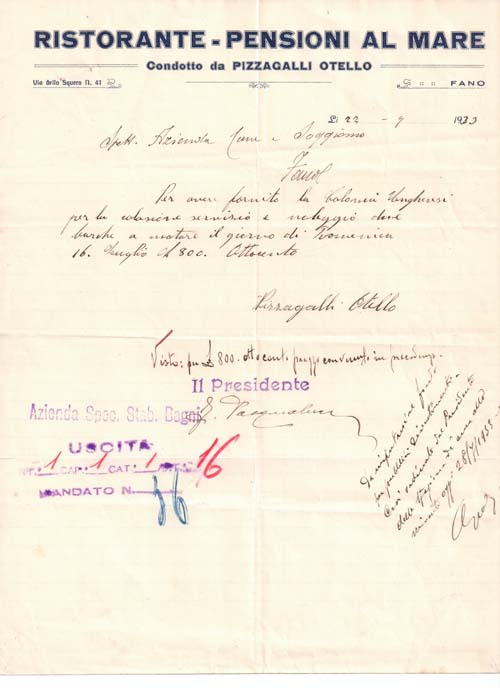 RISTORANTE - PENSIONI AL MARE
Condotto da PIZZAGALLI OTELLO
Via dello Squero N. 41
FANO
Li 22 - 9 1933
Spett. Azienda Cura e Soggiorno
Fano
Per avere fornito la Colonia Ungherese
per la colazione servizio e noleggio due
barche a motore il giorno di Domenica
16. Luglio £ 800. Ottocento
Pizzagalli Otello
Visto: per £ 800. ottocento prezzo convenuto in precedenza.
Il Presidente
Azienda Spec. Stab. Bagni
USCITA
1 CAP. 1 CAT. 1 ART. 16
MANDATO N. 56
Da
per
del Presidente
della
28/9/1933